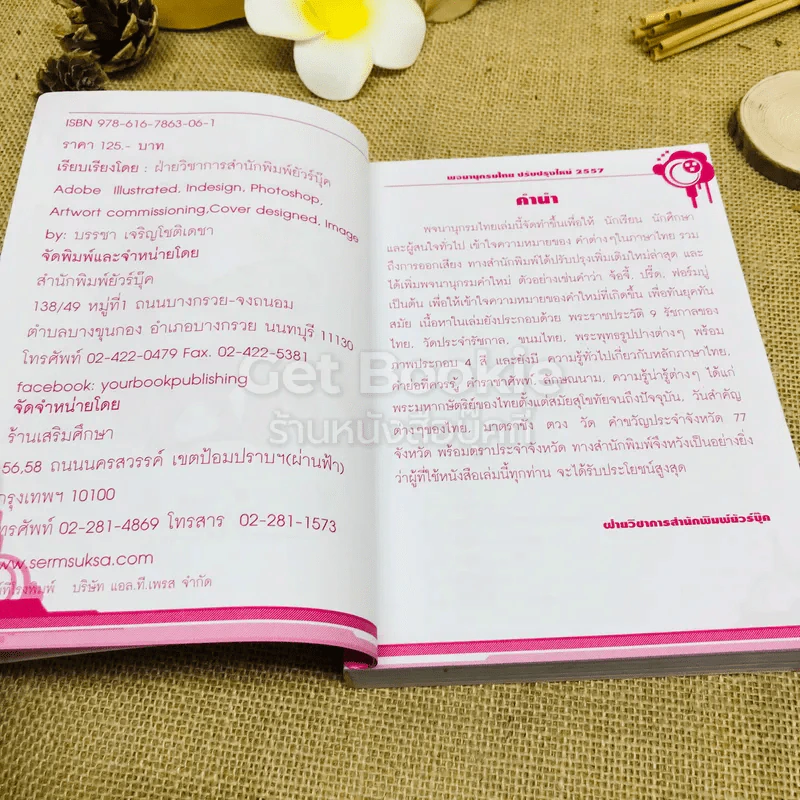 ISBN 978-616-7863-06-1
ราคา 125.- บาท
เรียบเรียงโดย : ฝ่ายวิชาการสำนักพิมพ์ยัวร์บุ๊ค
Adobe Illustrated, Indesign, Photoshop,
Artwort commissioning,Cover designed, Image
by: บรรชา เจริญโชติเดชา
จัดพิมพ์และจำหน่ายโดย
สำนักพิมพ์ยัวร์บุ๊ค
138/49 หมู่ที่1 ถนนบางกรวย-จงถนอม
ตำบลบางขุนกอง อำเภอบางกรวย นนทบุรี 11130
โทรศัพท์ 02-422-0479 Fax. 02-422-5381
facebook: yourbookpublishing
จัดจำหน่ายโดย
ร้านเสริมศึกษา
56,58 ถนนนครสวรรค์ เขตป้อมปราบฯ(ผ่านฟ้า)
กรุงเทพฯ 10100
โทรศัพท์ 02-281-4869 โทรสาร 02-281-1573
www.sermsuksa.com
พิมพ์ที่โรงพิมพ์ บริษัท แอล.ที.เพรส จำกัด
พจนานุกรมไทย ปรับปรุงใหม่ 2557
คำนำ
พจนานุกรมไทยเล่มนี้จัดทำขึ้นเพื่อให้ นักเรียน นักศึกษา
และผู้สนใจทั่วไป เข้าใจความหมายของ คำต่างๆในภาษาไทย รวม
ถึงการออกเสียง ทางสำนักพิมพ์ได้ปรับปรุงเพิ่มเติมใหม่ล่าสุด และ
ได้เพิ่มพจนานุกรมคำใหม่ ตัวอย่างเช่นคำว่า จ้อจี้, ปรี๊ด, ฟอร์มปู่
เป็นต้น เพื่อให้เข้าใจความหมายของคำใหม่ที่เกิดขึ้น เพื่อทันยุคทัน
สมัย เนื้อหาในเล่มยังประกอบด้วย พระราชประวัติ 9 รัชกาลของ
ไทย, วัดประจำรัชกาล, ขนมไทย, พระพุทธรูปปางต่างๆ พร้อม
ภาพประกอบ 4 สี และยังมี ความรู้ทั่วไปเกี่ยวกับหลักภาษาไทย,
คำย่อที่ควรรู้, คำราชาศัพท์, ลักษณนาม, ความรู้น่ารู้ต่างๆ ได้แก่
พระมหากษัตริย์ของไทยตั้งแต่สมัยสุโขทัยจนถึงปัจจุบัน, วันสำคัญ
ต่างๆของไทย, มาตราชั่ง ตวง วัด คำขวัญประจำจังหวัด 77
จังหวัด พร้อมตราประจำจังหวัด ทางสำนักพิมพ์จึงหวังเป็นอย่างยิ่ง
ว่าผู้ที่ใช้หนังสือเล่มนี้ทุกท่าน จะได้รับประโยชน์สูงสุด
ฝ่ายวิชาการสำนักพิมพ์ยัวร์บุ๊ค
Get Bookie
ร้านหนังสือบุ๊คกี้